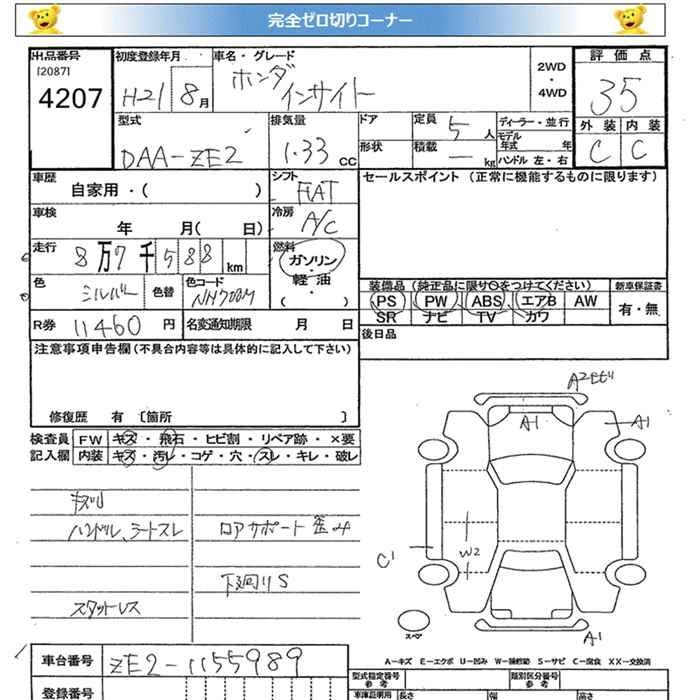 完全ゼロ切りコーナー
出品番号 初度登録年月 車名・グレード 評価点
[2087]
4207 H21 8月 ホンダ インサイト 2WD・4WD 35
型式 排気量 ドア 定員 5人 ディーラー・並行 外装 内装
DAA-ZE2 1.33 CC 形状 積載 — kg モデル年式 年 ハンドル 左・右 C C
車歴 自家用・( ) シフト FAT セールスポイント (正常に機能するものに限ります)
車検 年 月( 日) 冷房 A/C
走行 8万7千588 km 燃料 ガソリン・軽油・( )
色 シルバー 色替 色コード NH700M 装備品 (純正品に限り○をつけてください) 新車保証書
PS PW ABS エアB AW 有・無
SR ナビ TV カワ
R券 11460 円 名変通知期限 月 日 後日品
注意事項申告欄 (不具合内容等は具体的に記入して下さい)
修復歴 有 [箇所 ]
検査員 FW キズ・飛石・ヒビ割・リペア跡・×要
記入欄 内装 キズ・汚レ・コゲ・穴・スレ・キレ・破レ
ハンドル、シートスレ ロアサポート歪み
下廻りS
スタットレス
A1 A1
W2
C1
スペア A1
A-キズ E-エクボ U-凹み W-補修跡 S-サビ C-腐食 XX-交換済
車台番号 ZE2-1155989 型式指定番号 参考 類別区分番号 参考
登録番号 車庫証明用 長さ 幅 高さ